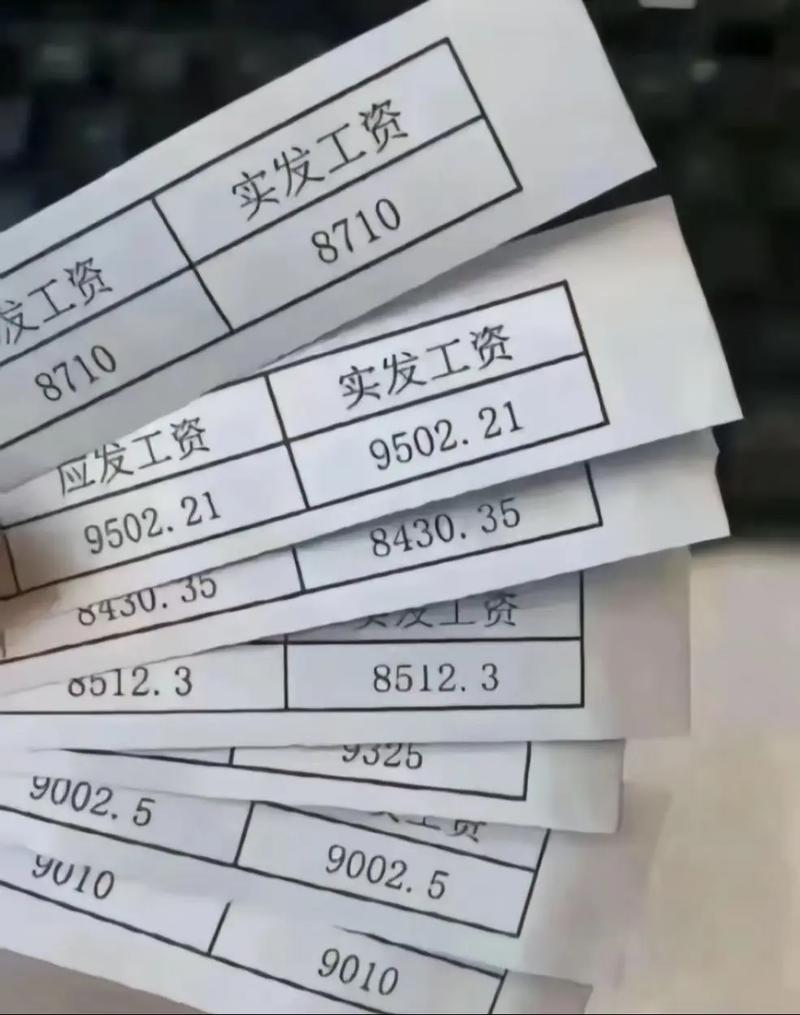 实发工资
发工资
8710
8710
实发工资
应发工资
9502.21
9502.21
8430.35
8430.35
实发工资
8512.3
8512.3
9325
9002.5
工资
9002.5
9010
9010